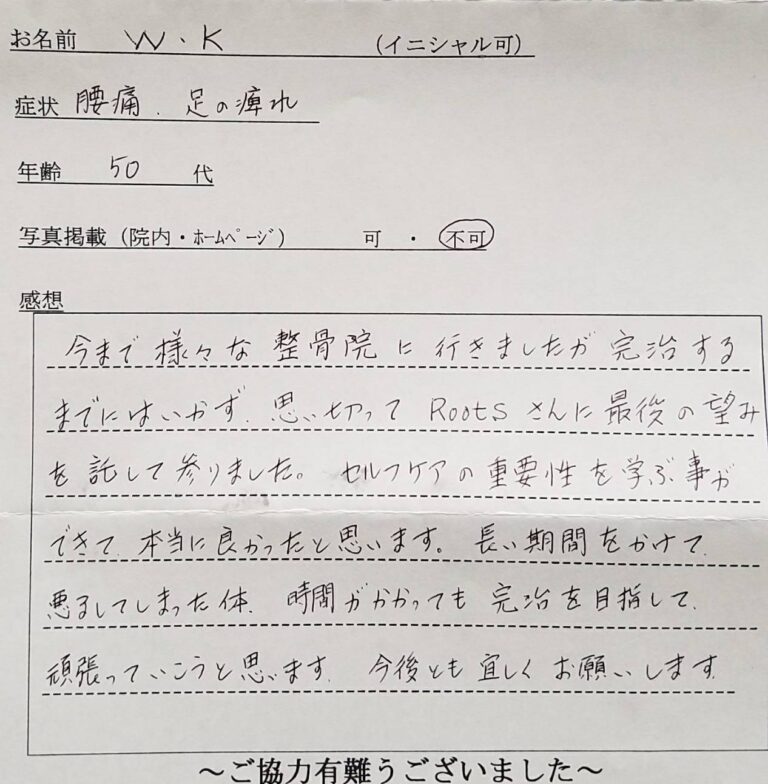 お名前 W・K (イニシャル可)
症状 腰痛. 足の痺れ
年齢 50 代
写真掲載(院内・ホームページ) 可 ・ 不可
感想
今まで様々な整骨院に行きましたが完治する
までにはいかず、思い切ってRootsさんに最後の望み
を託して参りました。セルフケアの重要性を学ぶ事が
できて、本当に良かったと思います。長い期間をかけて、
悪るしてしまった体、時間がかかっても完治を目指して、
頑張っていこうと思います。今後とも宜しくお願いします
～ご協力有難うございました～